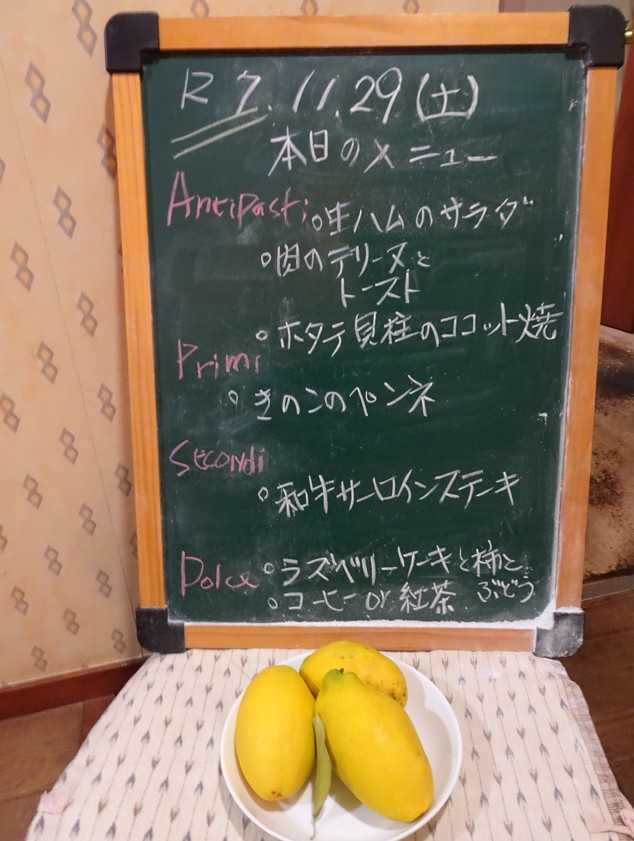 R7.11.29(土)
本日のメニュー
Antipasti 。生ハムのサラダ
。肉のテリーヌと
トースト
。ホタテ貝柱のココット焼
Primi
。きのこのペンネ
Secondi
。和牛サーロインステーキ
Dolce 。ラズベリーケーキと柿と
ぶどう
。コーヒー or 紅茶